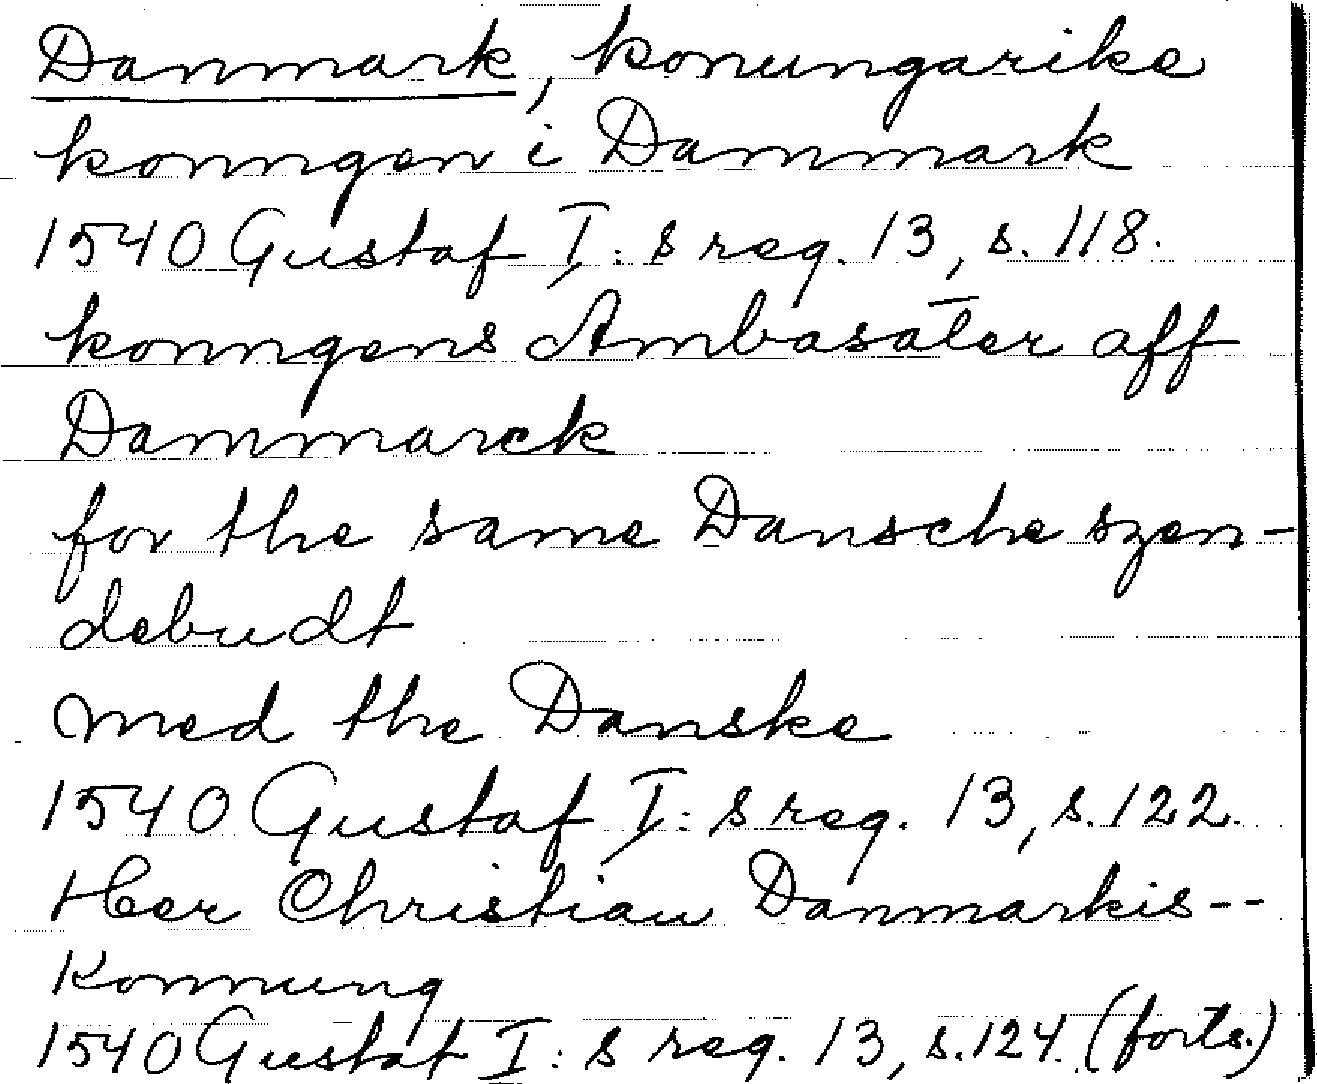 Danmark, konungarike
konngen i Dammark
1540 Gustaf I: s reg. 13, s. 118.
konngens Ambasater aff
Dammarck
for the same Dansche szen-
debudt
med the Danske
1540 Gustaf I: s reg. 13, s. 122.
Her Christian Danmarkis--
Konnung
1540 Gustaf I: s reg. 13, s. 124. (forts.)